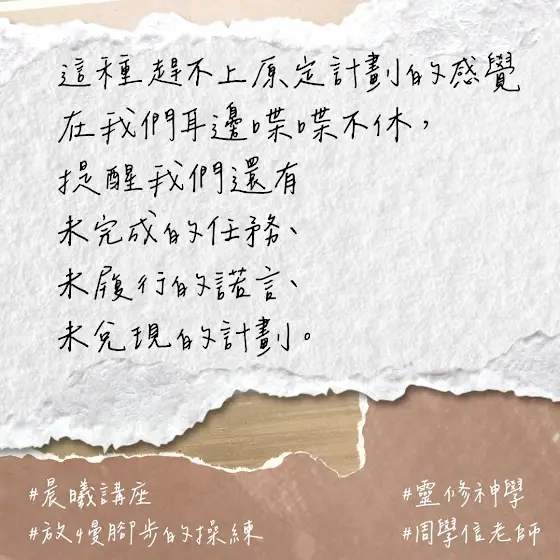 這種趕不上原定計劃的感覺
在我們耳邊喋喋不休，
提醒我們還有
未完成的任務、
未履行的諾言、
未兌現的計劃。
#晨曦講座
#放慢腳步的操練
#靈修神學
#周學信老師